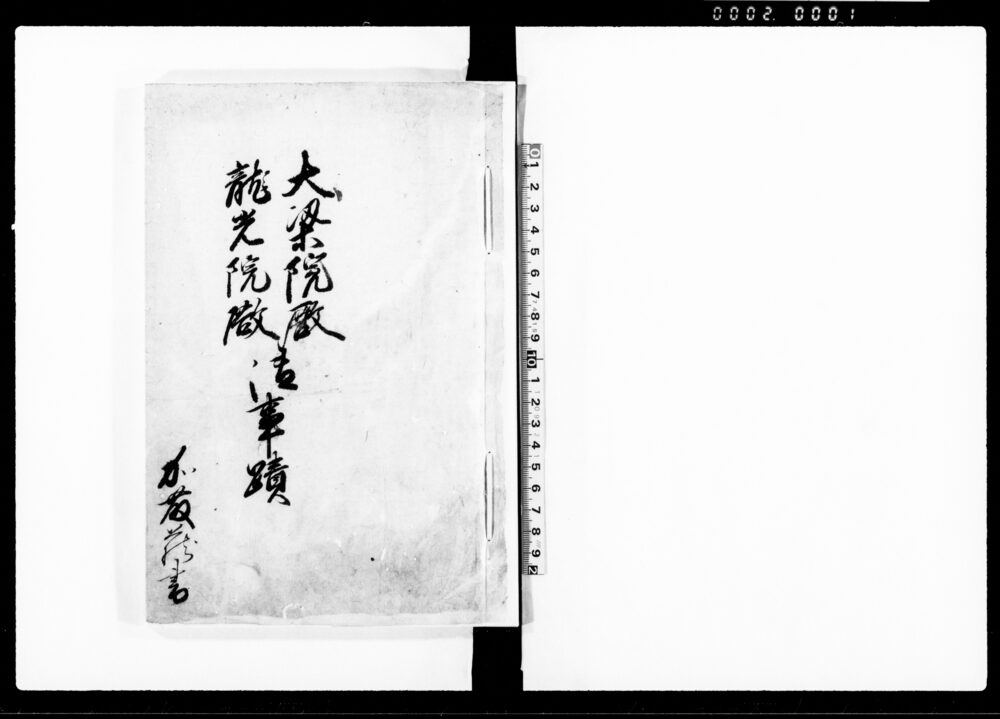 0002.0001
大梁院殿
龍光院殿
御事蹟
加藤蔵書
0 1 2 3 4 5 6 7 8 9 10 1 2 3 4 5 6 7 8 9 2